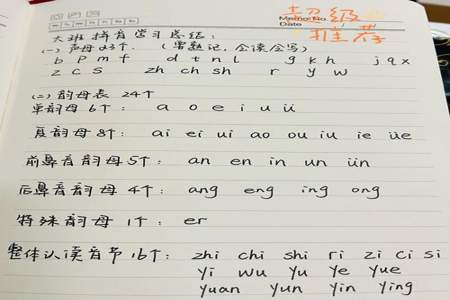 超级
推荐
Memo No.
Date
大班拼音学习总结:
(一)声母23个. (需熟记,会读会写)
b p m f d t n l g k h j q x
z c s zh ch sh r y w
(二)韵母表 24个
单韵母6个: a o e i u ü
复韵母8个: ai ei ui ao ou iu ie üe
前鼻音韵母5个: an en in un ün
后鼻音韵母4个: ang eng ing ong
特殊韵母1个: er
整体认读音节16个: zhi chi shi ri zi ci si
yi wu yu ye yue
yuan yun yin ying